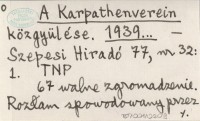 A Karpathenverein
közgyülése. 1939... —
Szepesi Hiradó 77, nr 32:
1. TNP
67 walne zgromadzenie.
Rozłam spowodowany przez